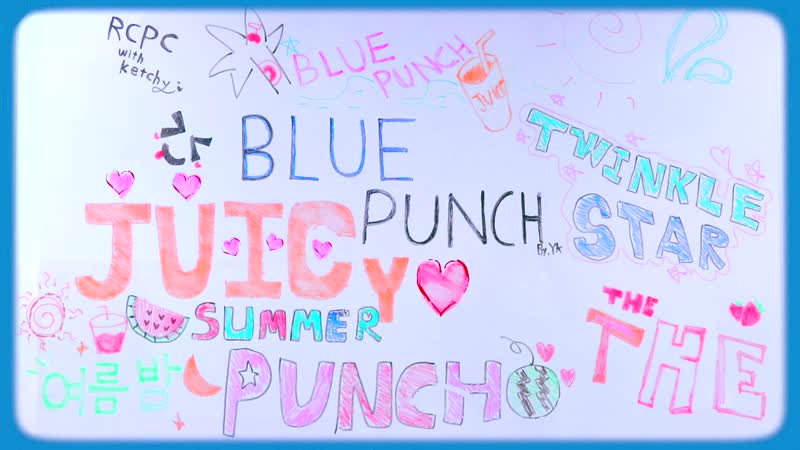 RCPC
with
ketchy
BLUE
PUNCH
JUICE
BLUE
PUNCH
By. YA
TWINKLE
STAR
JUICY
SUMMER
PUNCH
여름밤
THE
THE